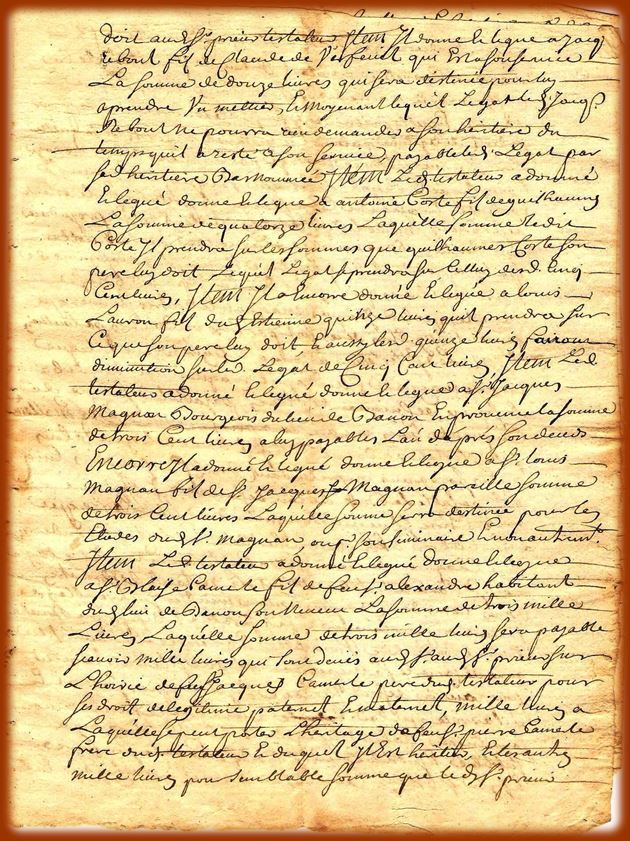 doit aud sr. prieur testateur Item Il donne et legue a Jacqs
Rebout fils de Claude de Verfeuil qui Est a son service
La somme de douze livres qui sera destinée pour luy
aprendre Un mettier, et Moyenant lequel Legat led Jacqs
Rebout ne pourra rien demander a son heritiere du
temps quil a resté a son service, payable led. Legat par
sad heritiere Bas nommée Item Led. testateur a donné
et legué donne et legue a antoine Corte fils de guilhaumes
La somme de quatorze livres Laquelle somme led it
Corte Il prendra sur les sommes que guilhaumes Corte son
pere luy doit Lequel Legat Il prendra sur Celluy desd. Cinq
Cent livres, Item Il a Encorre donné et legué a louis
Lauron fils du d Estienne quinze livres quil prendra sur
Ce que son pere luy doit et aussy lesd quinze livres fairont
diminution sur led Legat de Cinq Cent livres, Item Led.
testateur a donné et legué donne et legue a Sr. Jacques
Magnan Bourgeois du lieu de Banon En provence la somme
de trois Cent livres a luy payables L'an d'aprés son deceds
Encorre Il a donné et legué donne et legue a Sr. louis
Magnan fils de Sr. Jacques Magnan pareille somme
de trois Cent livres Laquelle somme serra destinée pour les
Etudes dud Sr. Magnan ou pr. son seminaire Et non autremt.
Item Led. testateur a donné et legué donne et legue
a Sr. Blaise Camete fils de feu sr. alexandre habitant
dud lieu de Banon son Neveu La somme de trois mille
Livres Laquelle somme de trois mille livres sera payable
scavoir mille livres qui sont deües aud Sr. prieur sur
L'hoirie de feu sr. Jacques Camete pere dud. testateur pour
ses droits de legitime paternel Et maternel, mille livres a
Laquelle se peut porter L'heritage de feu sr. pierre Camete
frere dud. testateur Et duquel Il Est heritier, Et les autres
mille livres pour semblable somme que led Sr. prieur